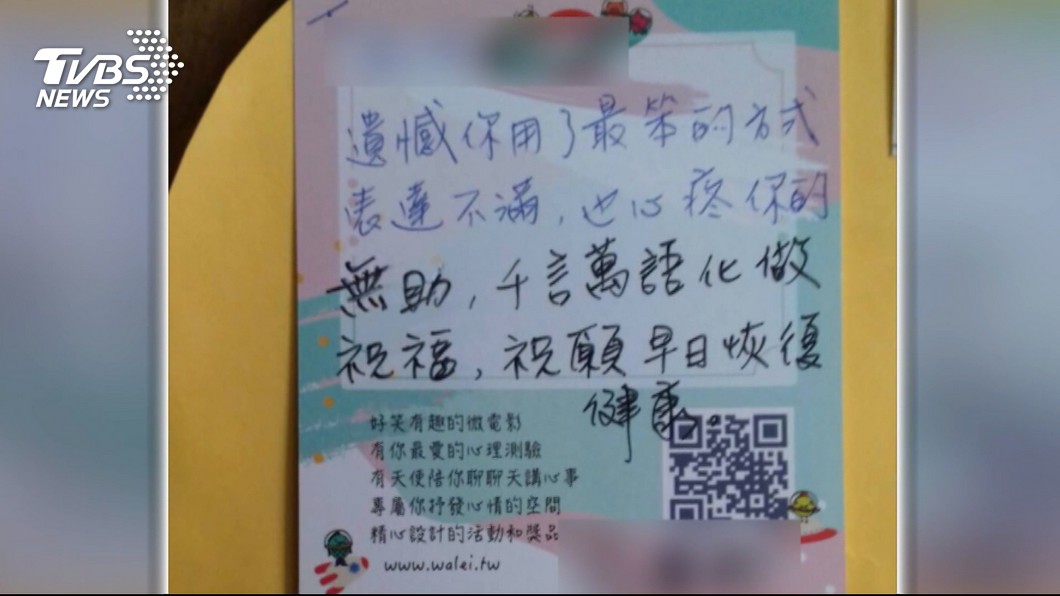 TVBS
NEWS
遺憾你用了最笨的方式
表達不滿，也心疼你的
無助，千言萬語化做
祝福，祝願早日恢復
健康。
好笑有趣的微電影
有你最愛的心理測驗
有天使陪你聊聊天講心事
專屬你抒發心情的空間
精心設計的活動和獎品
www.walei.tw